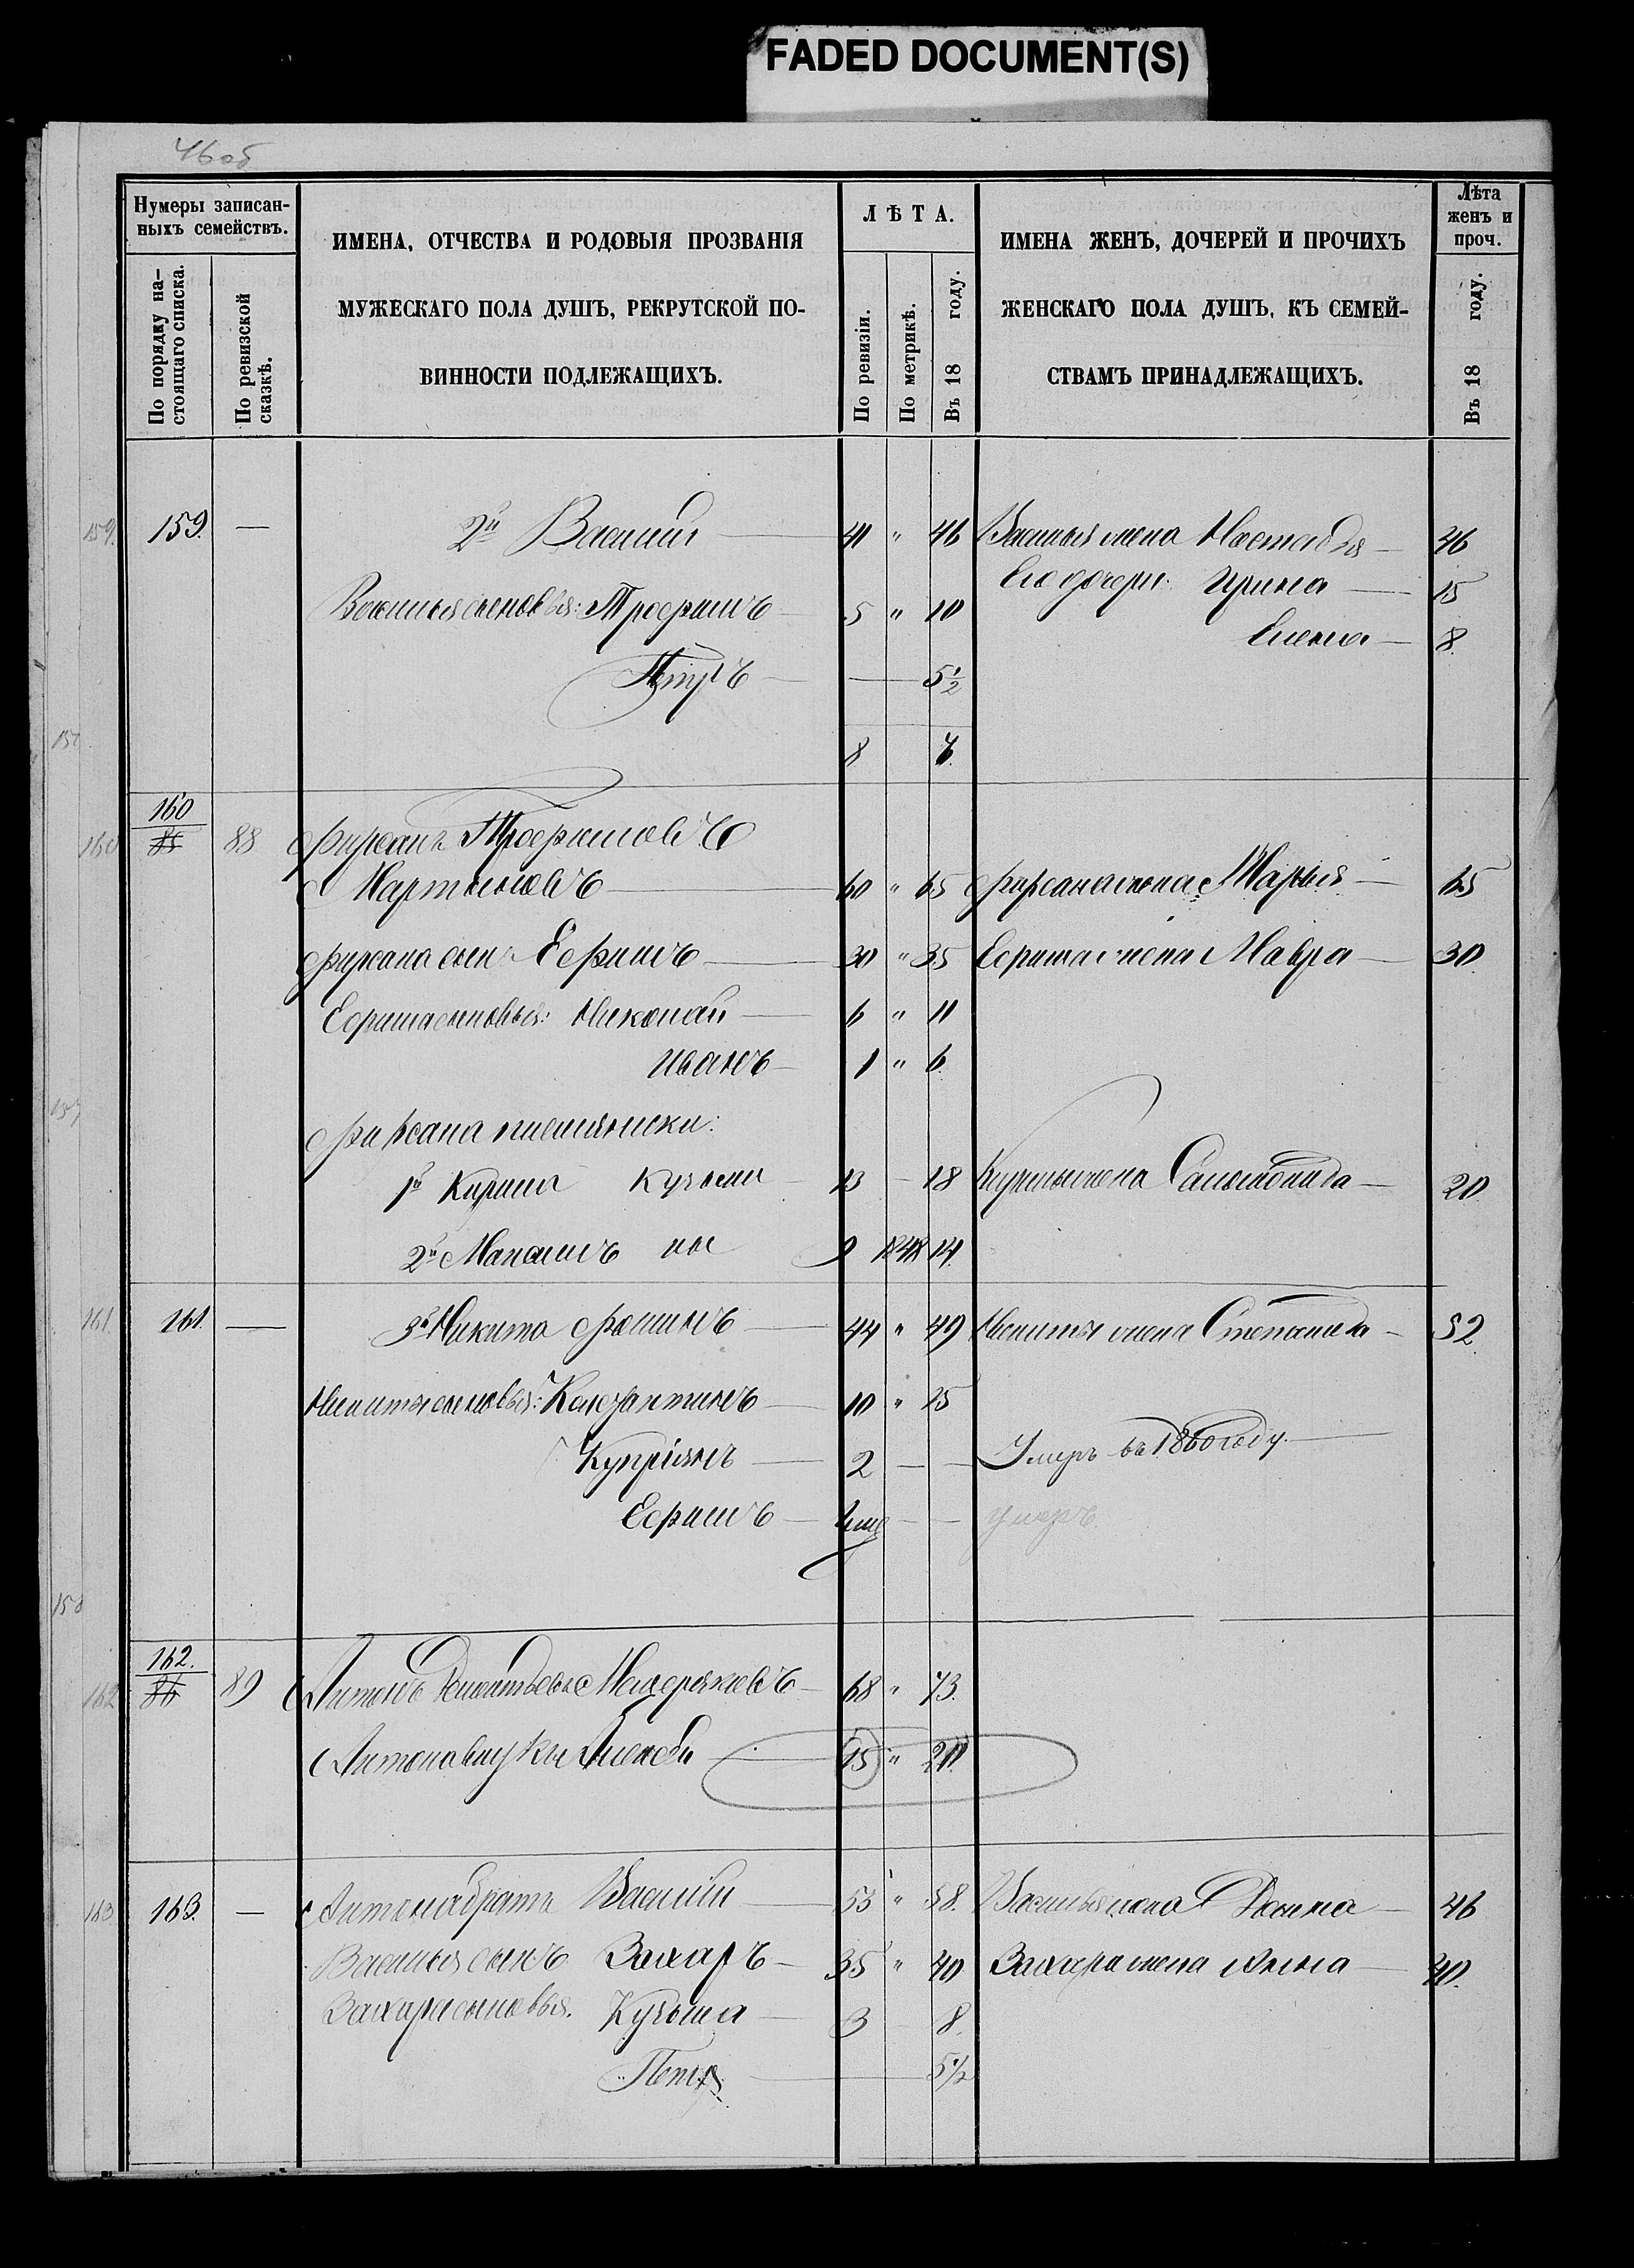 FADED DOCUMENT(S)
46 об
Нумеры записан-
ныхъ семействъ.
По порядку на-
стоящаго списка.
По ревизской
сказкѣ.
ИМЕНА, ОТЧЕСТВА И РОДОВЫЯ ПРОЗВАНІЯ
МУЖЕСКАГО ПОЛА ДУШЪ, РЕКРУТСКОЙ ПО-
ВИННОСТИ ПОДЛЕЖАЩИХЪ.
ЛѢТА.
По ревизіи.
По метрикѣ.
Въ 18 году.
ИМЕНА ЖЕНЪ, ДОЧЕРЕЙ И ПРОЧИХЪ
ЖЕНСКАГО ПОЛА ДУШЪ, КЪ СЕМЕЙ-
СТВАМЪ ПРИНАДЛЕЖАЩИХЪ.
Лѣта
женъ и
проч.
Въ 18 году.
159. 159. — 2й Василий — 41 " 46 Василья жена Настасья — 46
Василья сыновья: Трофимъ — 5 " 10 Его дочери: Ирина — 15
Елена — 8.
Петръ — — 5½
8 7.
160 160 85 88 Фирсанъ Трофимовъ
Мартыновъ — 60 " 65 Фирсана жена Марья — 65
Фирсана сынъ Ефимъ — 30 " 35 Ефима жена Мавра — 30
Ефима сыновья: Николай — 6 " 11
Иванъ — 1 " 6.
Фирсана племянники:
1й Кирила Кузьми 13 — 18 Кирилы жена Саломонида — 20
2й ны 9 1848 14.
161. 161. — 3й Никита Фоминъ — 44 " 49 Никиты жена Степанида — 52
Никиты сыновья: Константинъ — 10 " 15
Купріянъ — 2 — — Умеръ въ 1860 году. —
Ефимъ — — — умеръ
158
162 162. 86 89 Антонъ Мещеряковъ — 68 " 73.
Антона внукъ Алексѣй — 15 " 20.
163 163. — Антона братъ Василій — 53 " 58. Василья жена — 46
Василья сынъ Захаръ — 35 " 40 Захара жена Анна — 40.
Захара сыновья. Кузьма — 3 8.
Петръ — 5½